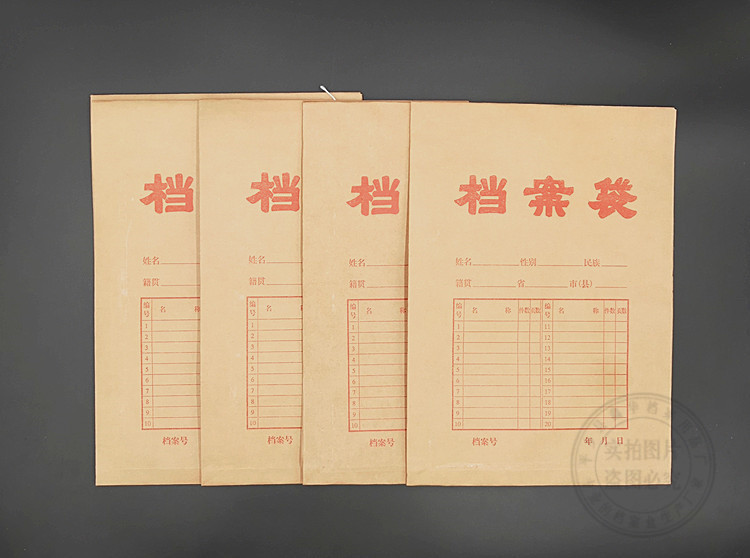 档
姓名
籍贯
编号 名 称
1
2
3
4
5
6
7
8
9
10
档案号
档
姓名
籍贯
编号 名
1
2
3
4
5
6
7
8
9
10
档案号
档
姓名
籍贯
编号 名
1
2
3
4
5
6
7
8
9
10
档案号
档案袋
姓名 性别 民族
籍贯 省 市(县)
编号 名 称 件数 页数 编号 名 称 件数 页数
1 11
2 12
3 13
4 14
5 15
6 16
7 17
8 18
9 19
10 20
档案号 年 月 日
实拍图片
盗图必究